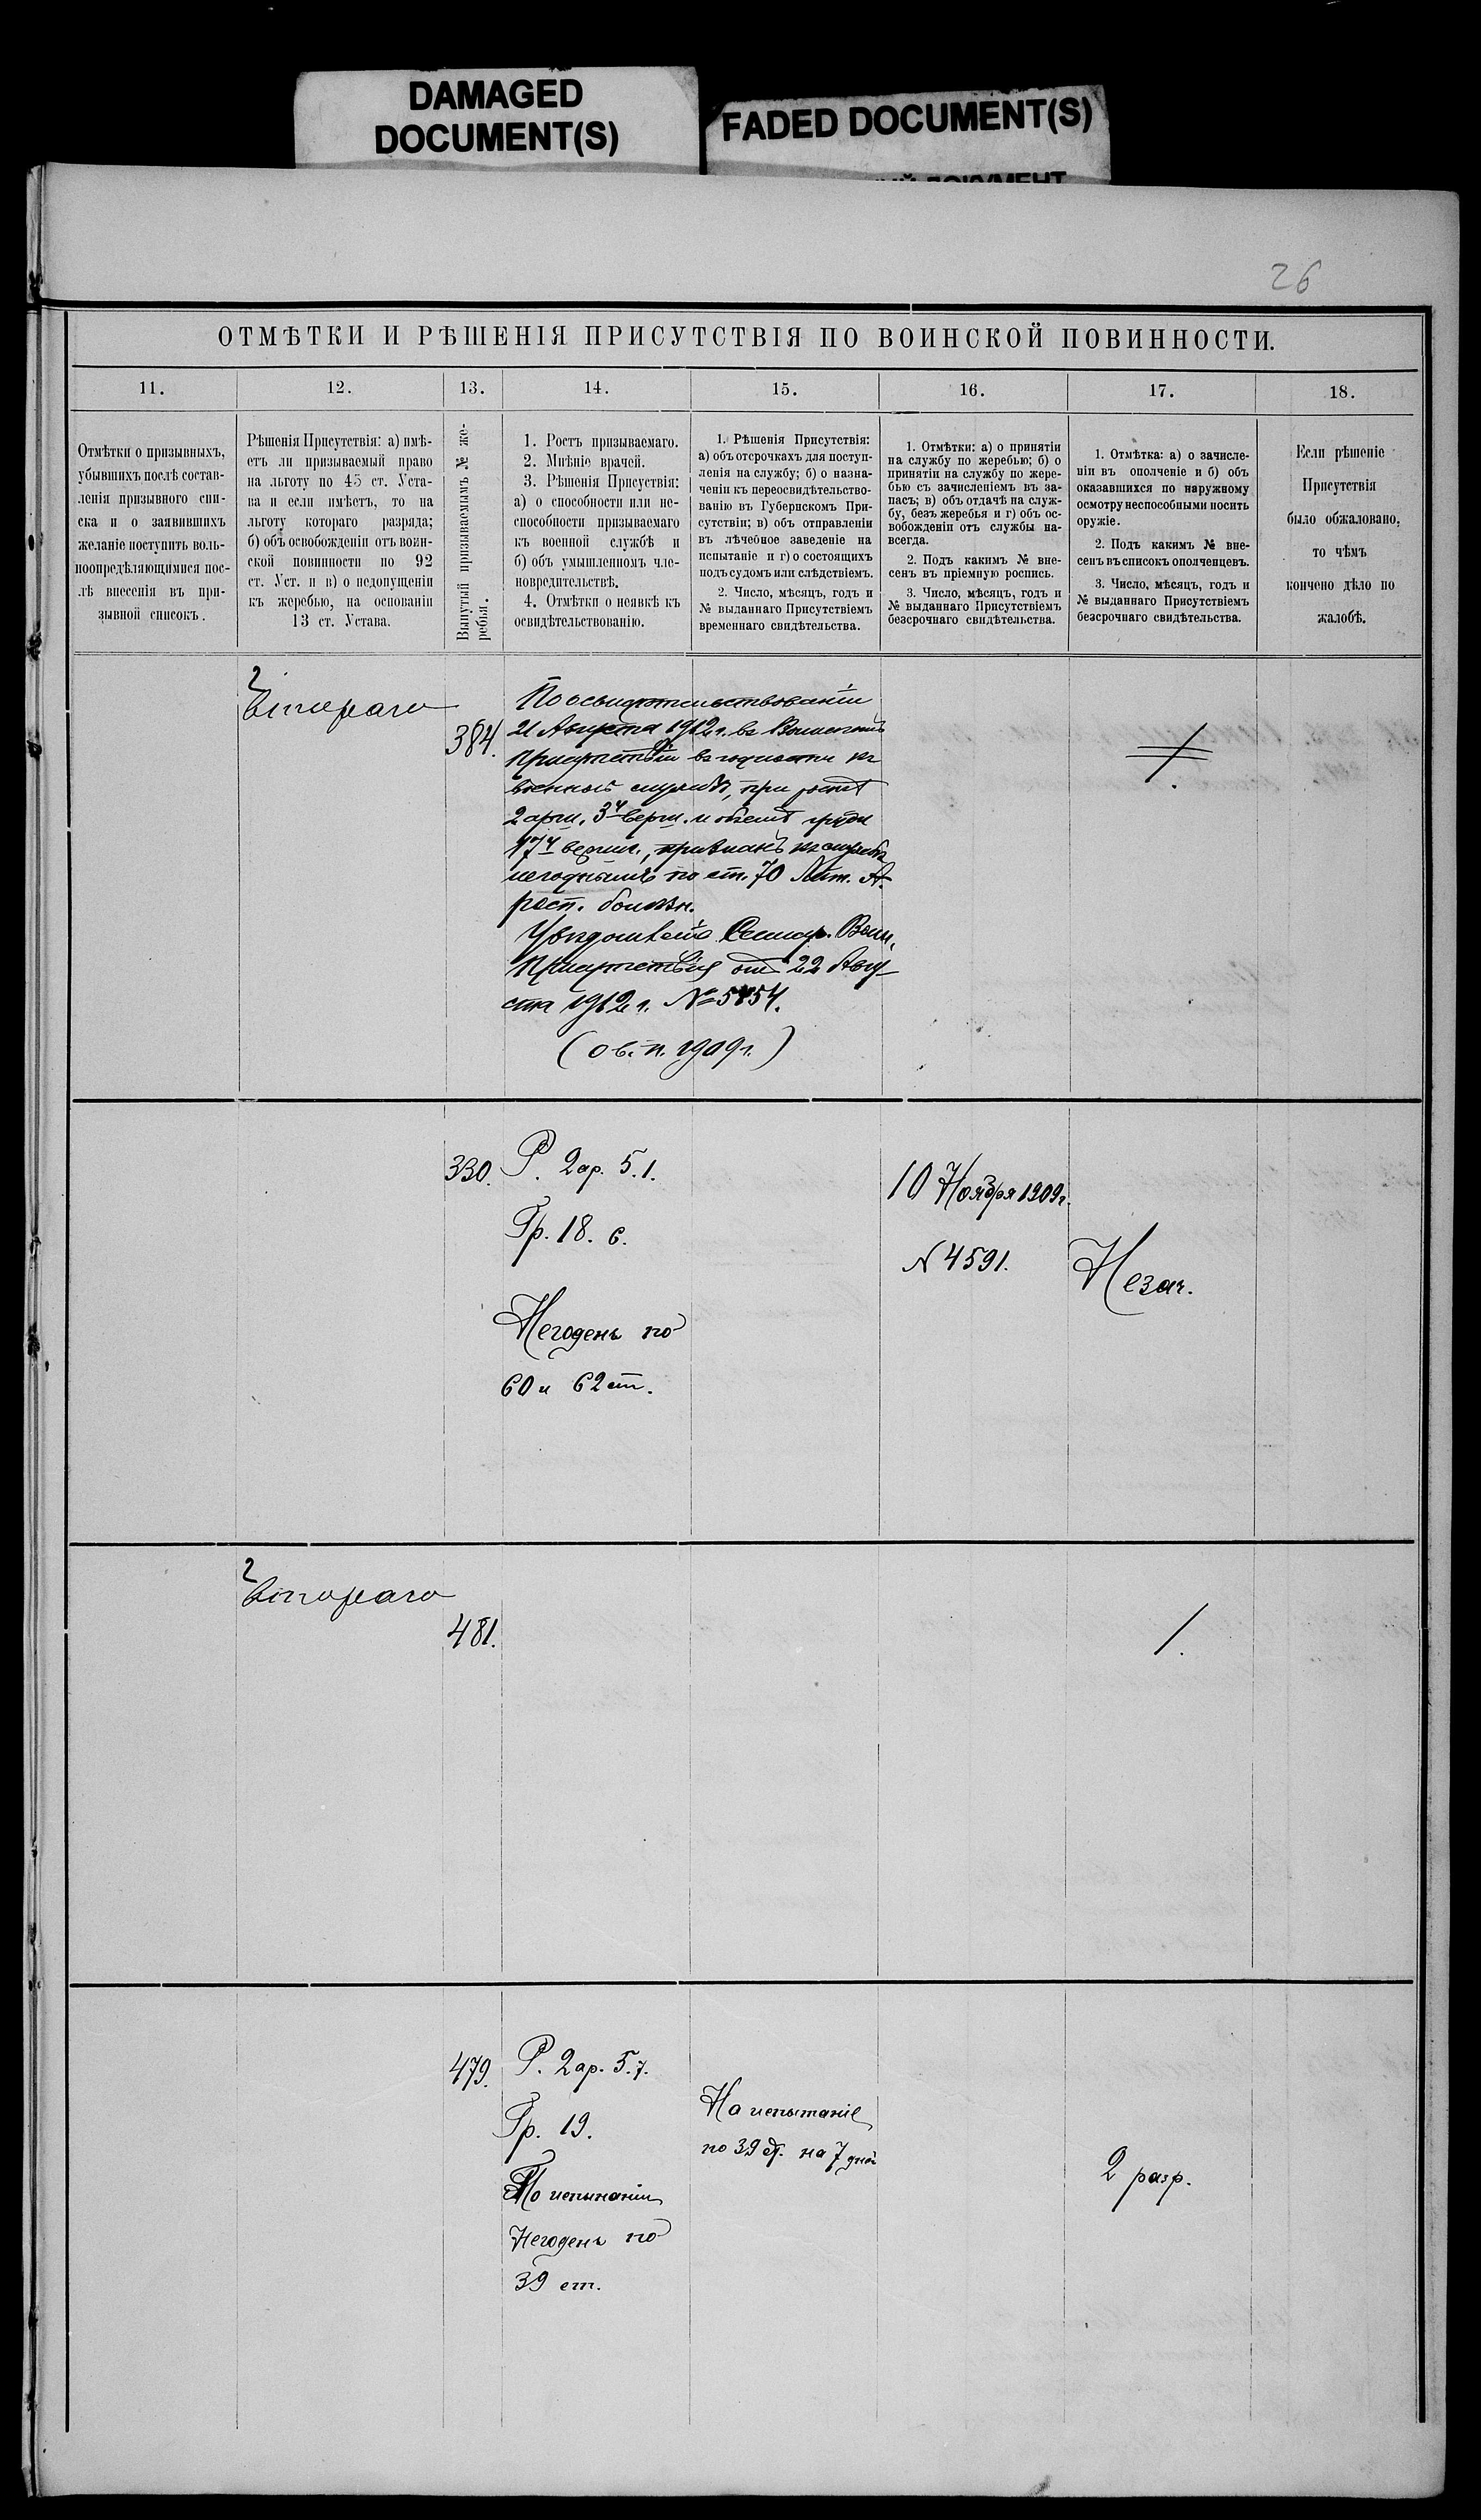 DAMAGED
DOCUMENT(S)
FADED DOCUMENT(S)
26
ОТМѢТКИ И РѢШЕНІЯ ПРИСУТСТВІЯ ПО ВОИНСКОЙ ПОВИННОСТИ.
11.
12.
13.
14.
15.
16.
17.
18.
Отмѣтки о призывныхъ,
убывшихъ послѣ состав-
ленія призывного спи-
ска и о заявившихъ
желаніе поступить воль-
ноопредѣляющимися пос-
лѣ внесенія въ при-
зывной списокъ.
Рѣшенія Присутствія: а) имѣ-
етъ ли призываемый право
на льготу по 45 ст. Уста-
ва и если имѣетъ, то на
льготу котораго разряда;
б) объ освобожденіи отъ воин-
ской повинности по 92
ст. Уст. и в) о недопущеніи
къ жеребью, на основаніи
13 ст. Устава.
Вынутый призываемымъ № же-
ребья.
1. Ростъ призываемаго.
2. Мнѣніе врачей.
3. Рѣшенія Присуствія:
а) о способности или не-
способности призываемаго
къ военной службѣ и
б) объ умышленномъ чле-
новредительствѣ.
4. Отмѣтки о неявкѣ къ
освидѣтельствованію.
1. Рѣшенія Присутствія:
а) объ отсрочкахъ для поступ-
ленія на службу; б) о назна-
ченіи къ переосвидѣтельство-
ванію въ Губернскомъ При-
сутствіи; в) объ отправленіи
въ лѣчебное заведеніе на
испытаніе и г) о состоящихъ
подъ судомъ или слѣдствіемъ.
2. Число, мѣсяцъ, годъ и
№ выданнаго Присутствіемъ
временнаго свидѣтельства.
1. Отмѣтки: а) о принятіи
на службу по жеребью; б) о
принятіи на службу по жере-
бью съ зачисленіемъ въ за-
пасъ; в) объ отдачѣ на служ-
бу, безъ жеребья и г) объ ос-
вобожденіи отъ службы на-
всегда.
2. Подъ какимъ № вне-
сенъ въ пріемную роспись.
3. Число, мѣсяцъ, годъ и
№ выданнаго Присутствіемъ
безсрочнаго свидѣтельства.
1. Отмѣтка: а) о зачисле-
ніи въ ополченіе и б) объ
оказавшихся по наружному
осмотру неспособными носить
оружіе.
2. Подъ какимъ № вне-
сенъ въ списокъ ополченцевъ.
3. Число, мѣсяцъ, годъ и
№ выданнаго Присутствіемъ
безсрочнаго свидѣтельства.
Если рѣшеніе
Присутствія
было обжаловано,
то чѣмъ
кончено дѣло по
жалобѣ.
2
Втораго
384.
По освидѣтельствованіи
21 Августа 1912 г. въ Воинскомъ
Присутствіи въ годности къ
военной службѣ, при ростѣ
2 арш. 3 4 верш. и объемѣ груди
17 4 верш., признанъ къ службѣ
негоднымъ по ст. 70 Лит. А
росп. болѣзн.
Увѣдомленіе Воин.
Присутствія отъ 22 Авгу-
ста 1912 г. № 5854.
(о в. п. 1909 г.)
330.
Р. 2 ар. 5.1.
Гр. 18. 6.
Негоденъ по
60 и 62 ст.
10 Ноября 1909 г.
N 4591.
Незач.
2
Втораго
481.
1.
479.
Р. 2 ар. 5.7.
Гр. 19.
По испытаніи
Негоденъ по
39 ст.
На испытаніе
по 39 ст. на 7 дней
2 разр.